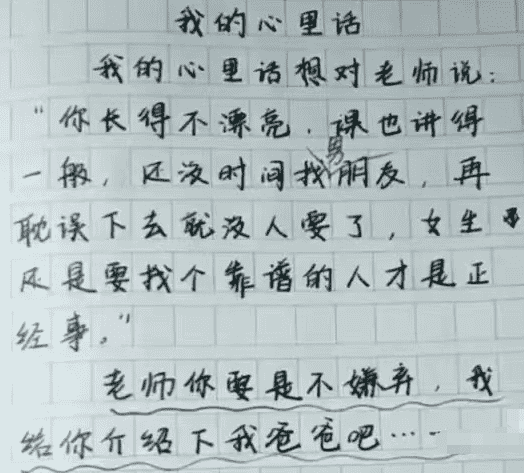 我的心里话
我的心里话想对老师说：
“你长得不漂亮，课也讲得
一般，还没时间找男朋友，再
耽误下去就没人要了，女生
还是要找个靠谱的人才是正
经事。”
老师你要是不嫌弃，我
给你介绍下我爸爸吧……